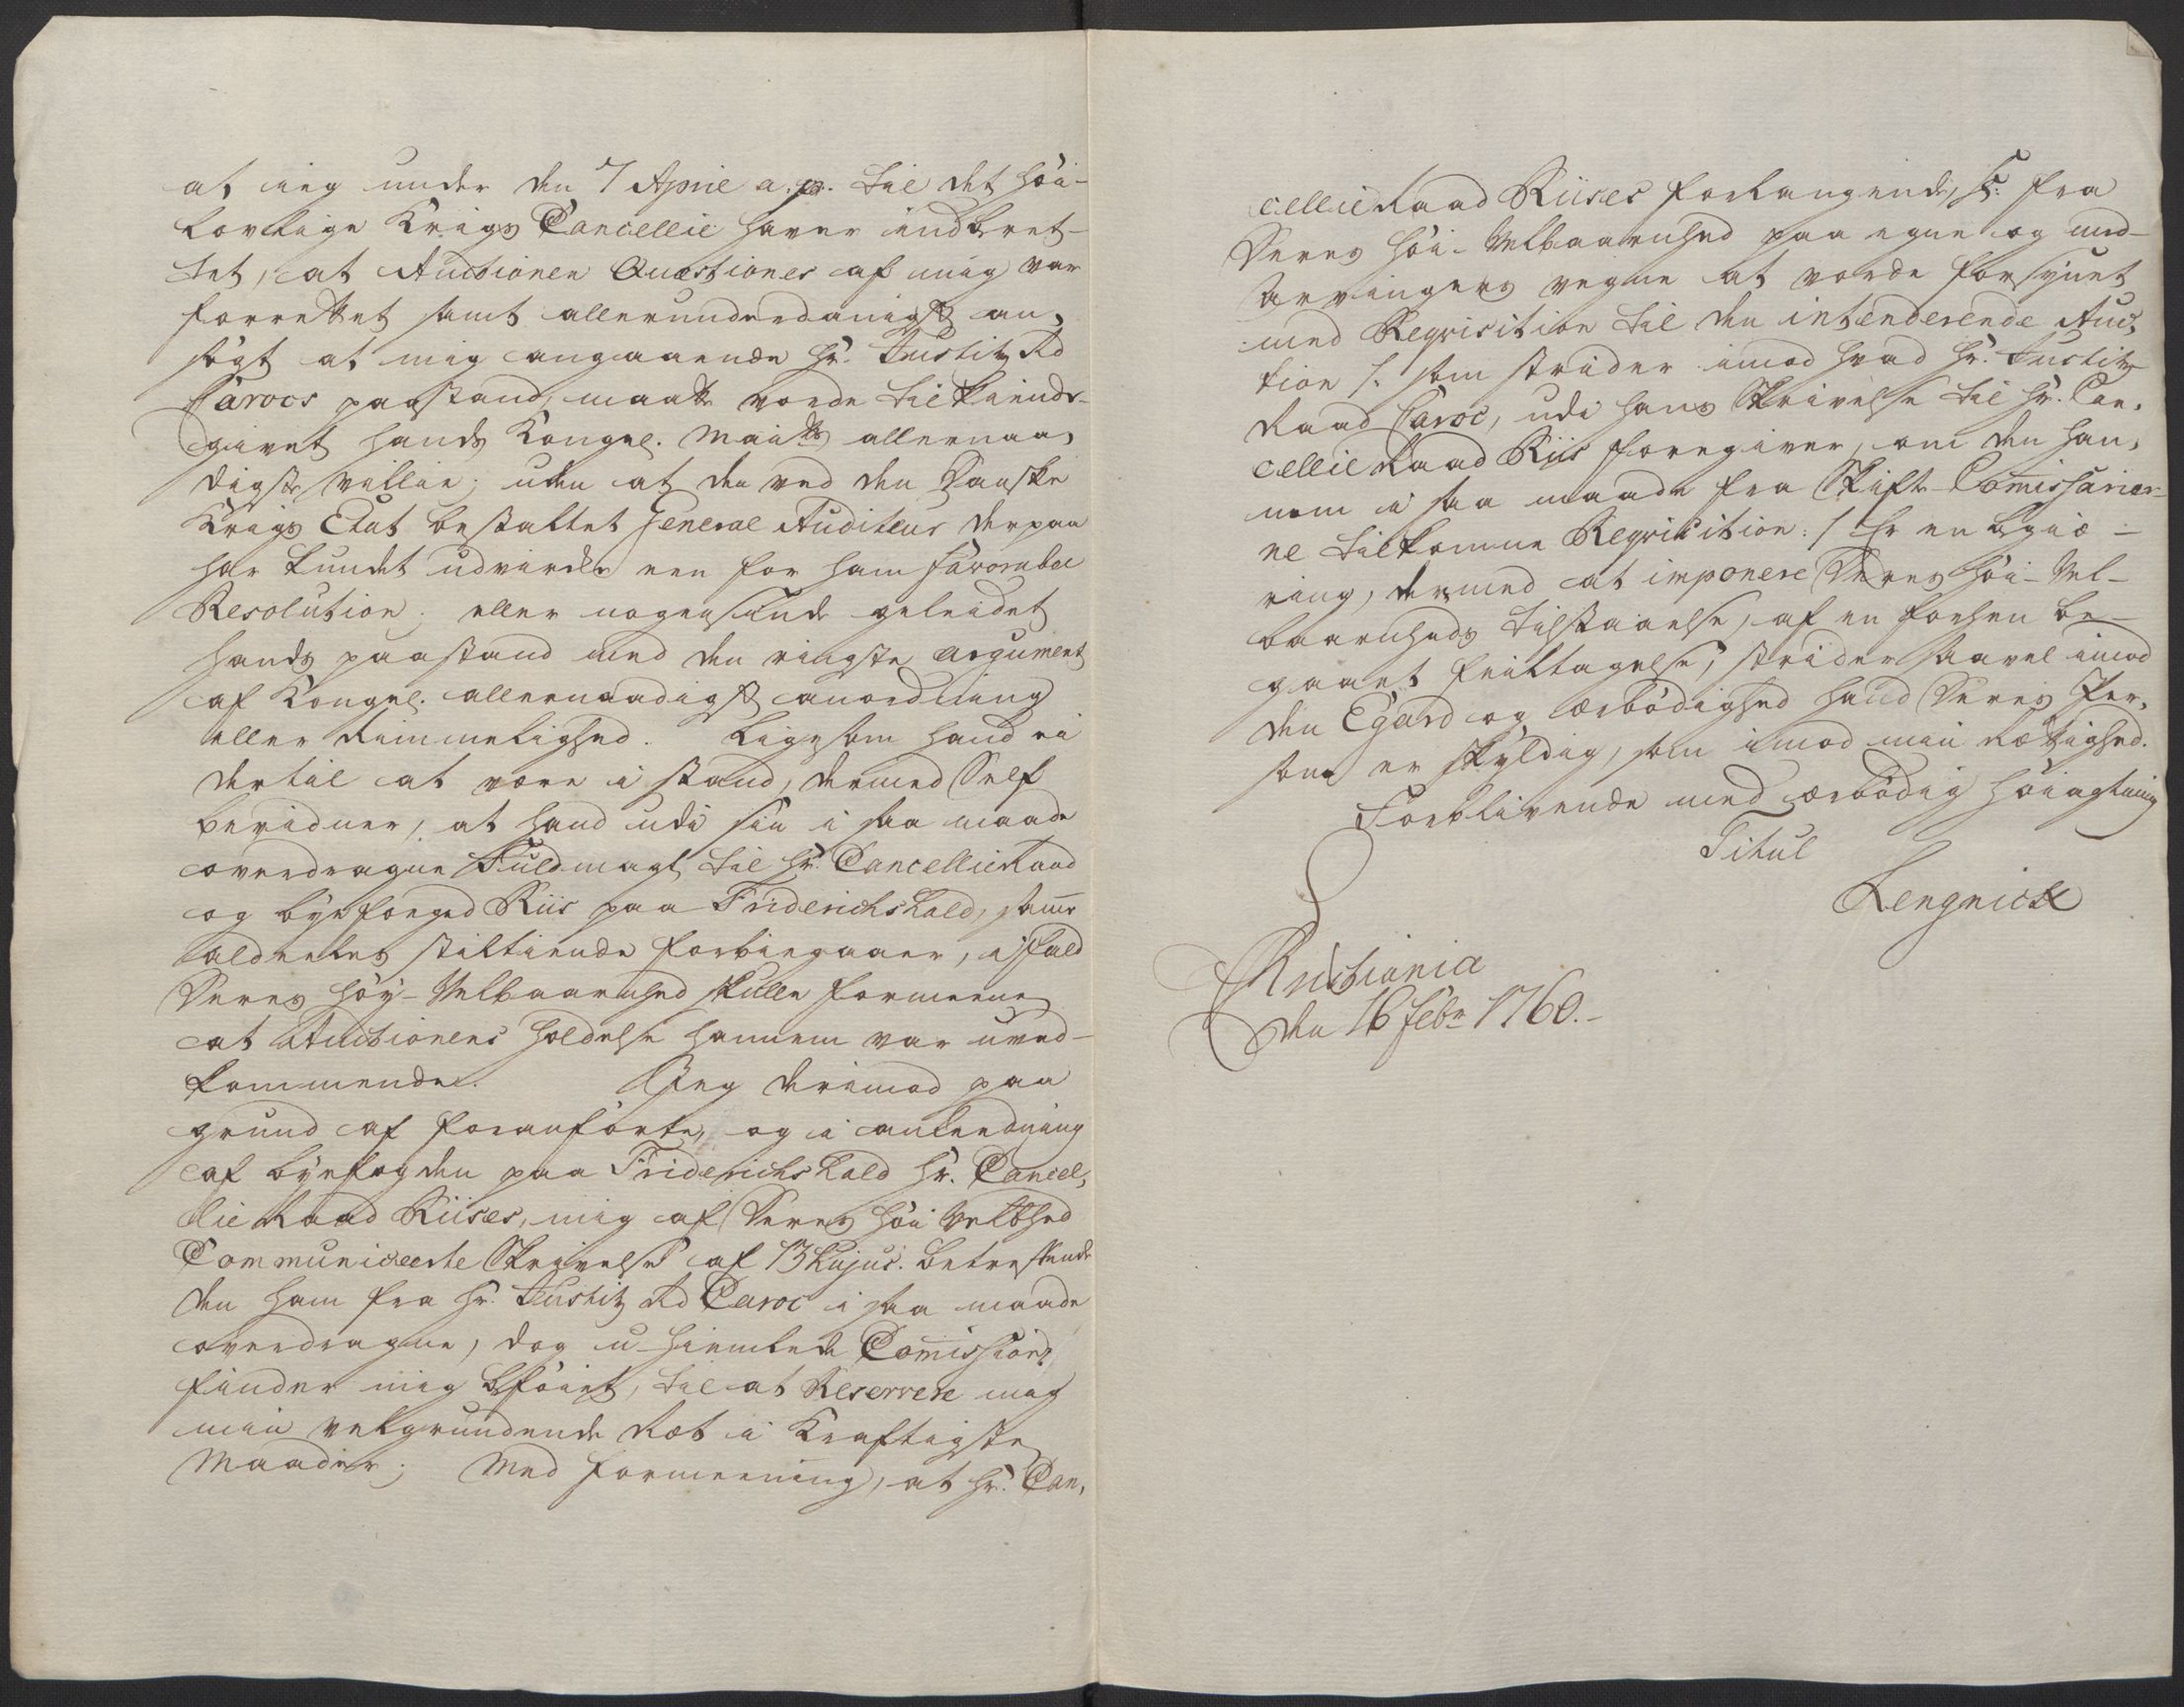 at ieg under den 7 April a. p. til det höi-
lovlige Krigs Cancellie haver indberet-
tet, at Auctionen Quæstiones af mig var
forrettet samt allerunderdanigst an-
søgt at mig angaaende Hr. Justitz Rd
Carocs paastand, maatte vorde tilkiende-
givet hands Kongel. Maits allernaa-
digste villie; uden at den ved den Danske
Krigs Etat bestaltet General Auditeur derpaa
har kundet udvirke een for ham favorabel
Resolution; eller nogensinde geleidet
hands paastand med den ringeste argument
af Kongel. allernaadigst anordning
eller Rimmelighed. Ligesom hand ei
dertil at være i stand, dermed Self
bevidner, at hand udi sin i saa maade
overdragne Fuldmagt til Hr. CancellieRaad
og byefoged Riis paa Friderichshald, samme
aldeeles stiltiende forbiegaaer, ifald
Deres Höy-Velbaarenhed skulle formeene
at Auctionens holdelse hannem var uved-
kommende. Jeg derimod paa
grund af foranførte, og i anleedning
af byefogden paa Friderichshald Hr. Cancel-
lie Raad Riises, mig af Deres Höi Velbhed
Communiceerte Skrivelse af 13 hujus. betreffende
den ham fra Hr. Justitz Rd Caroc i saa maade
overdragne, dog u-hiemlede Commission,
finder mig beföiet, til at Reservere mig
min velgrundende Ræt i Kraftigste
Maader; Med formeening, at Hr. Can-
cellieRaad Riises forlangende, /: fra
Deres Höi-Velbaarenhed paa egne og med-
Arvingers vegne at vorde forsynet
med Reqvisition til den intenderende Auc-
tion /: som strider imod hvad Hr. Justitz
Raad Caroc, udi hans Skrivelse til Hr. Can-
cellie Raad Riis foregiver, om den han-
nem i saa maade fra Skifte-Comissarier-
ne tilkomne Reqvisition :/ Er en begiæ-
ring, dermed at imponere Deres Höi-Vel-
baarenheds tilstaaelse, af en forhen be-
gaaet feiltagelse, strider saavel imod
den Egard og ærbödighed hand Deres Per-
son er skyldig, som imod min rættighed.
Forblivende med ærbödig Höiagtning
Titul
Lengnick
Christiania
den 16 Febr 1760.-